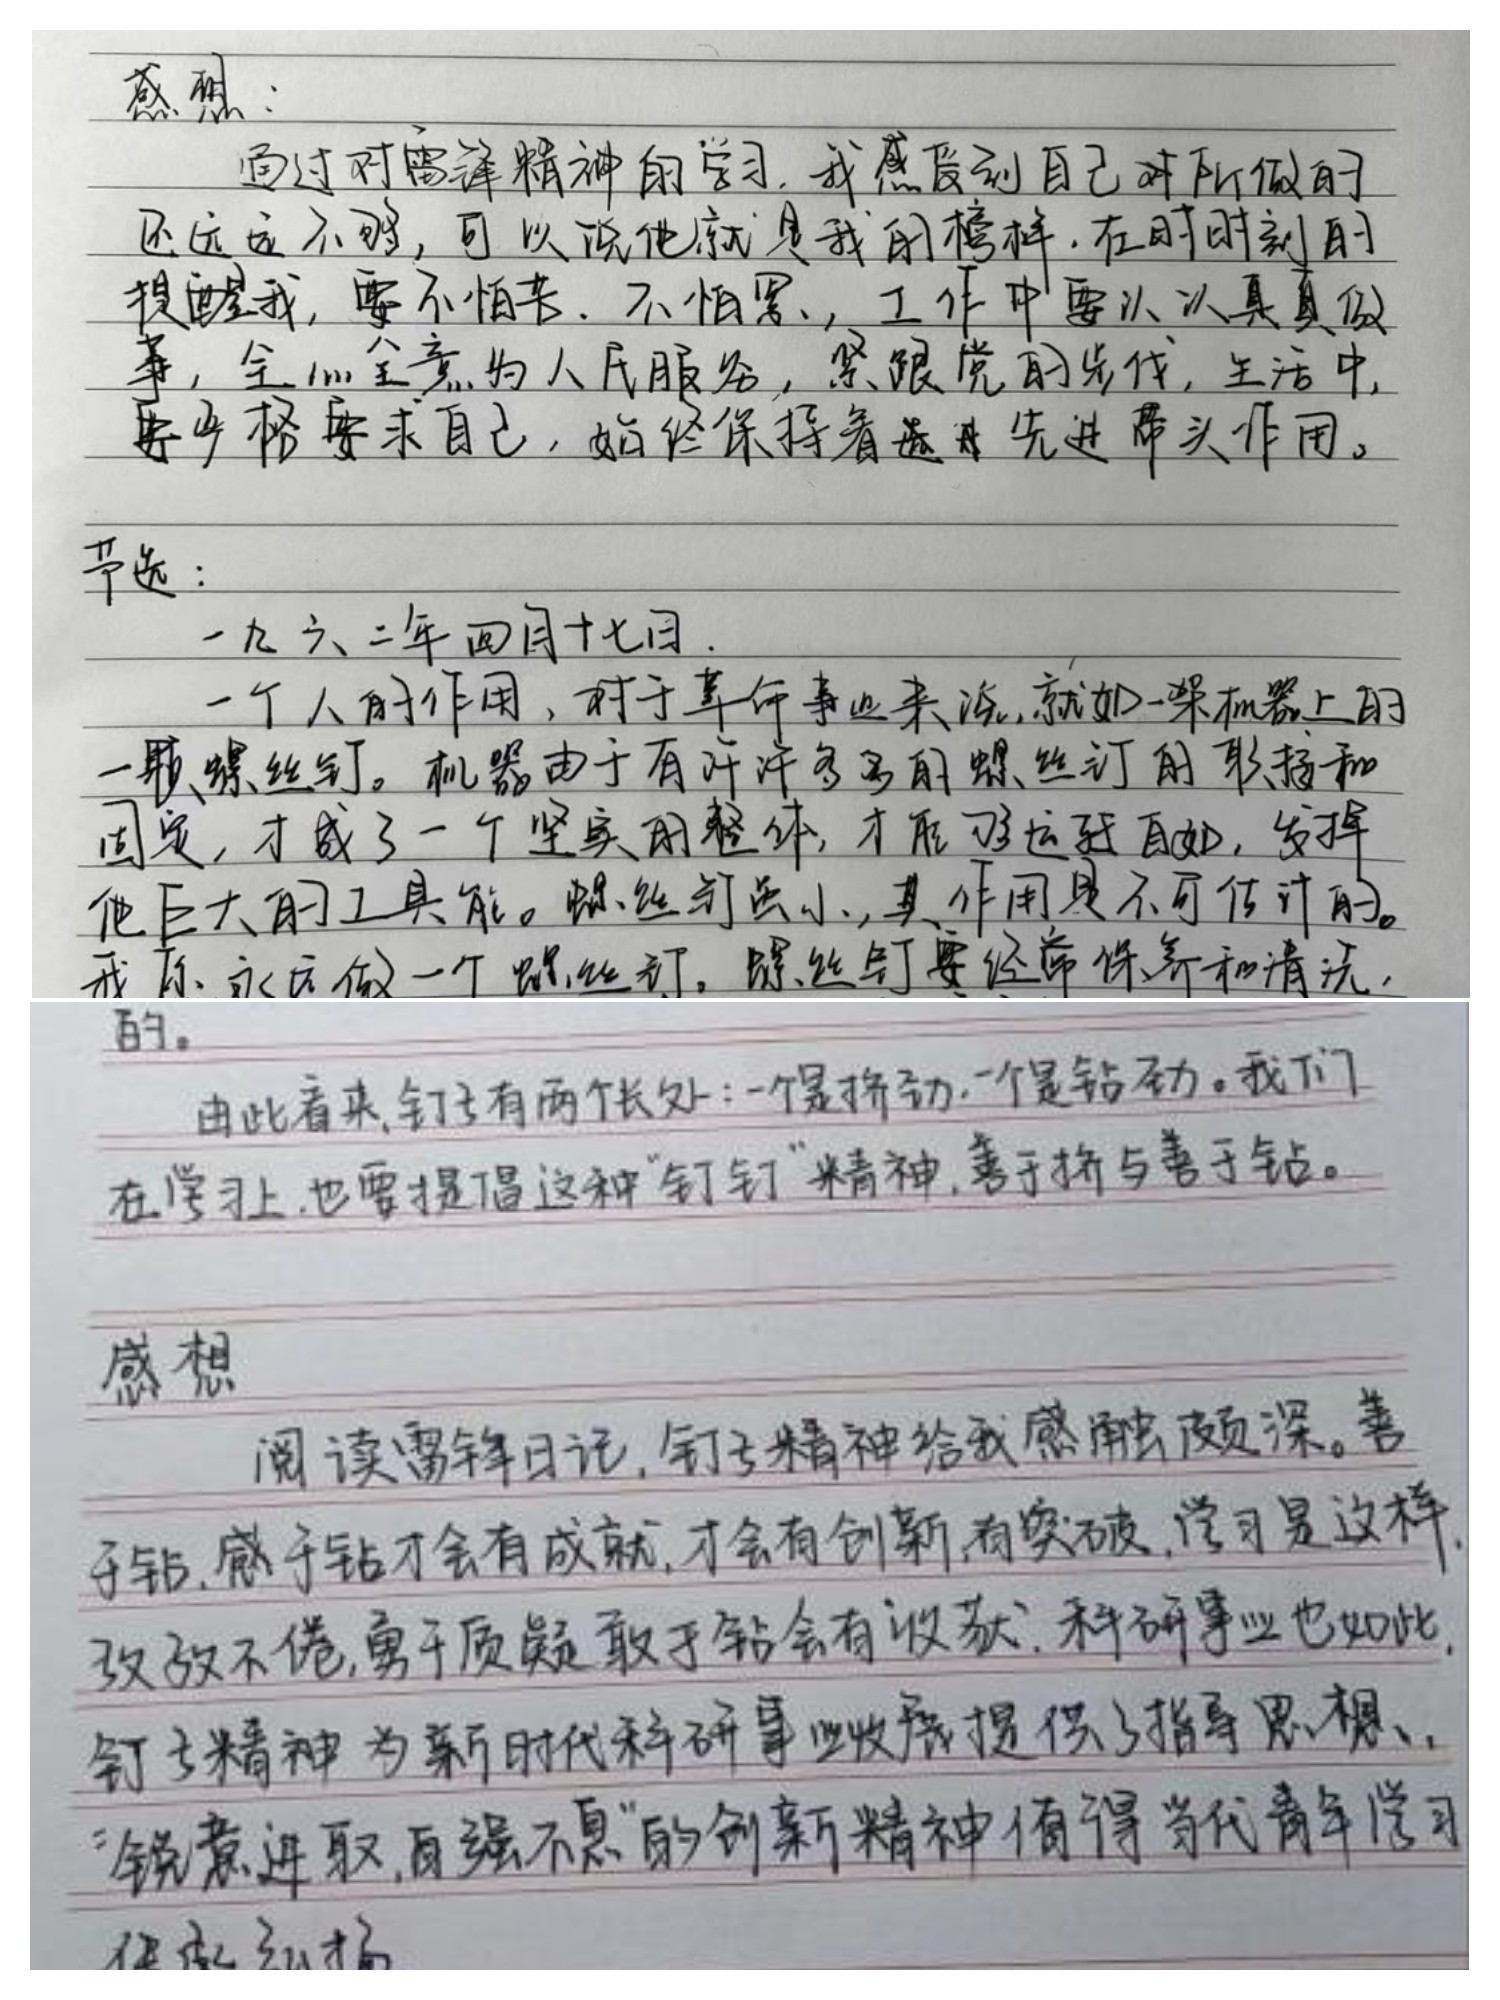 感想：
通过对雷锋精神的学习，我感受到自己对所做的
还远远不够，可以说他就是我的榜样，在时时刻的
提醒我，要不怕苦、不怕累，工作中要认认真真做
事，全心全意为人民服务，紧跟党的步伐，生活中，
要严格要求自己，始终保持着先进带头作用。
节选：
一九六二年四月十七日.
一个人的作用，对于革命事业来说，就如一架机器上的
一颗螺丝钉。机器由于有许许多多的螺丝钉的联接和
固定，才成了一个坚实的整体，才能够运转自如，发挥
他巨大的工具能。螺丝钉虽小，其作用是不可估计的。
我愿永远做一个螺丝钉。螺丝钉要经常保养和清洗，
的。
由此看来，钉子有两个长处：一个是挤劲，一个是钻劲。我们
在学习上，也要提倡这种“钉钉”精神，善于挤与善于钻。
感想
阅读雷锋日记，钉子精神给我感触颇深。善
于钻，感于钻才会有成就，才会有创新，有突破，学习是这样，
孜孜不倦，勇于质疑敢于钻会有收获，科研事业也如此，
钉子精神为新时代科研事业发展提供了指导思想，
“锐意进取，自强不息”的创新精神值得当代青年学习